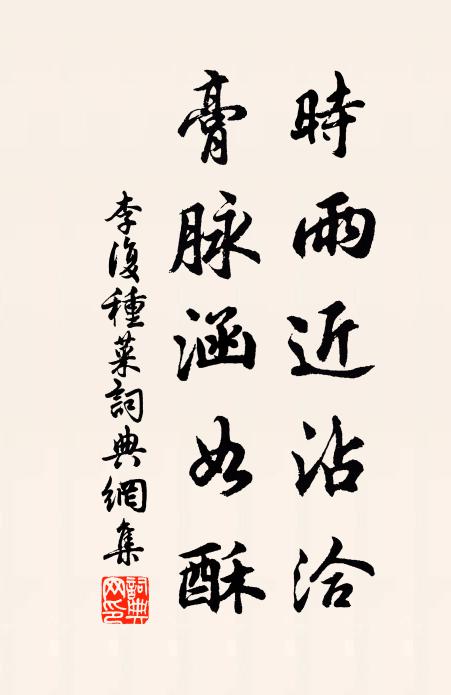 時雨近沾洽
膏脉涵如酥
李復種菜詞典網集
詞典網印